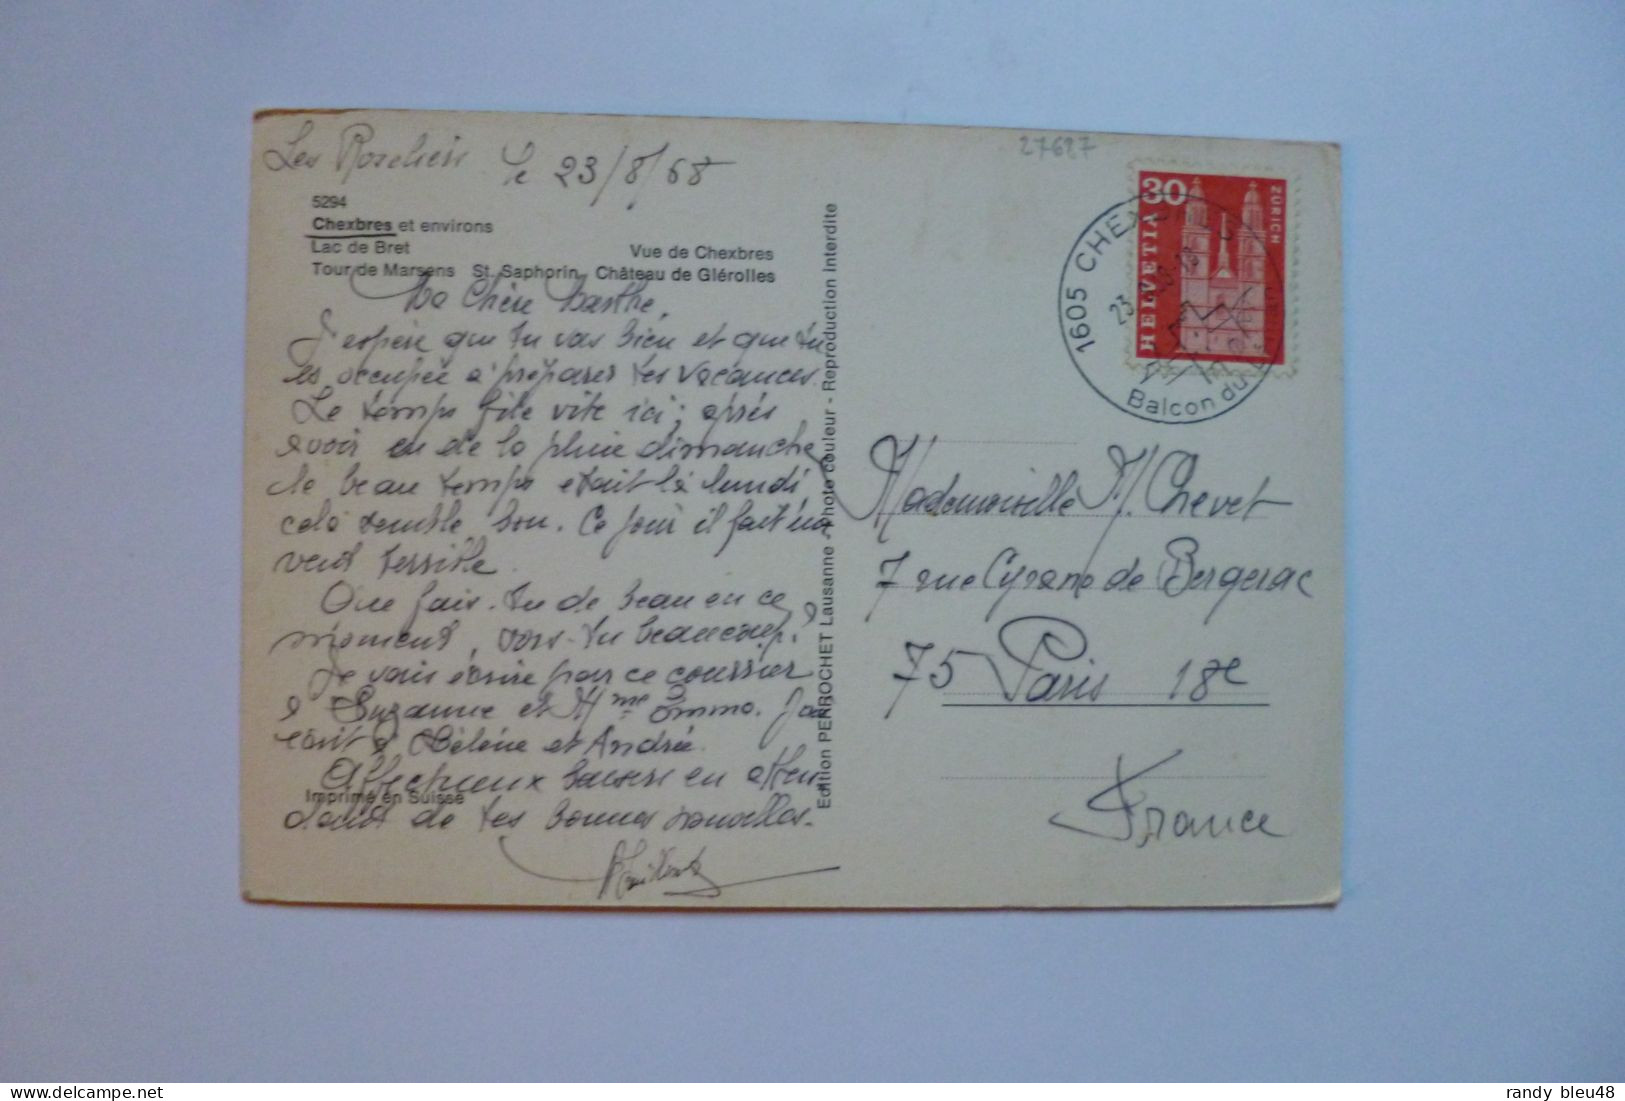 Les le 23/8/68
27687
5294
Chexbres et environs
Lac de Bret Vue de Chexbres
Tour de Marsens St. Saphorin Château de Glérolles
Ma Chère Marthe,
J'espère que tu vas bien et que tu
es occupée à préparer tes vacances.
Le temps file vite ici ; après
avoir eu de la pluie dimanche
le beau temps était là lundi,
cela semble bon. Ce jour il fait un
vent terrible.
Que fais-tu de beau en ce
moment, sors-tu beaucoup ?
Je vais écrire par ce courrier
à Suzanne et Mme Emma. J'ai
écrit à Hélène et André.
Affectueux baisers en atten
dant de tes bonnes nouvelles.
Imprimé en Suisse
Edition PERROCHET Lausanne - Photo couleur - Reproduction interdite
30
HELVETIA
ZÜRICH
1605 CHEXBRES
23.
Balcon du
Mademoiselle M. Chevet
7 rue Cyrano de Bergerac
75 Paris 18e
France
Delcampe.net
randy_bleu48